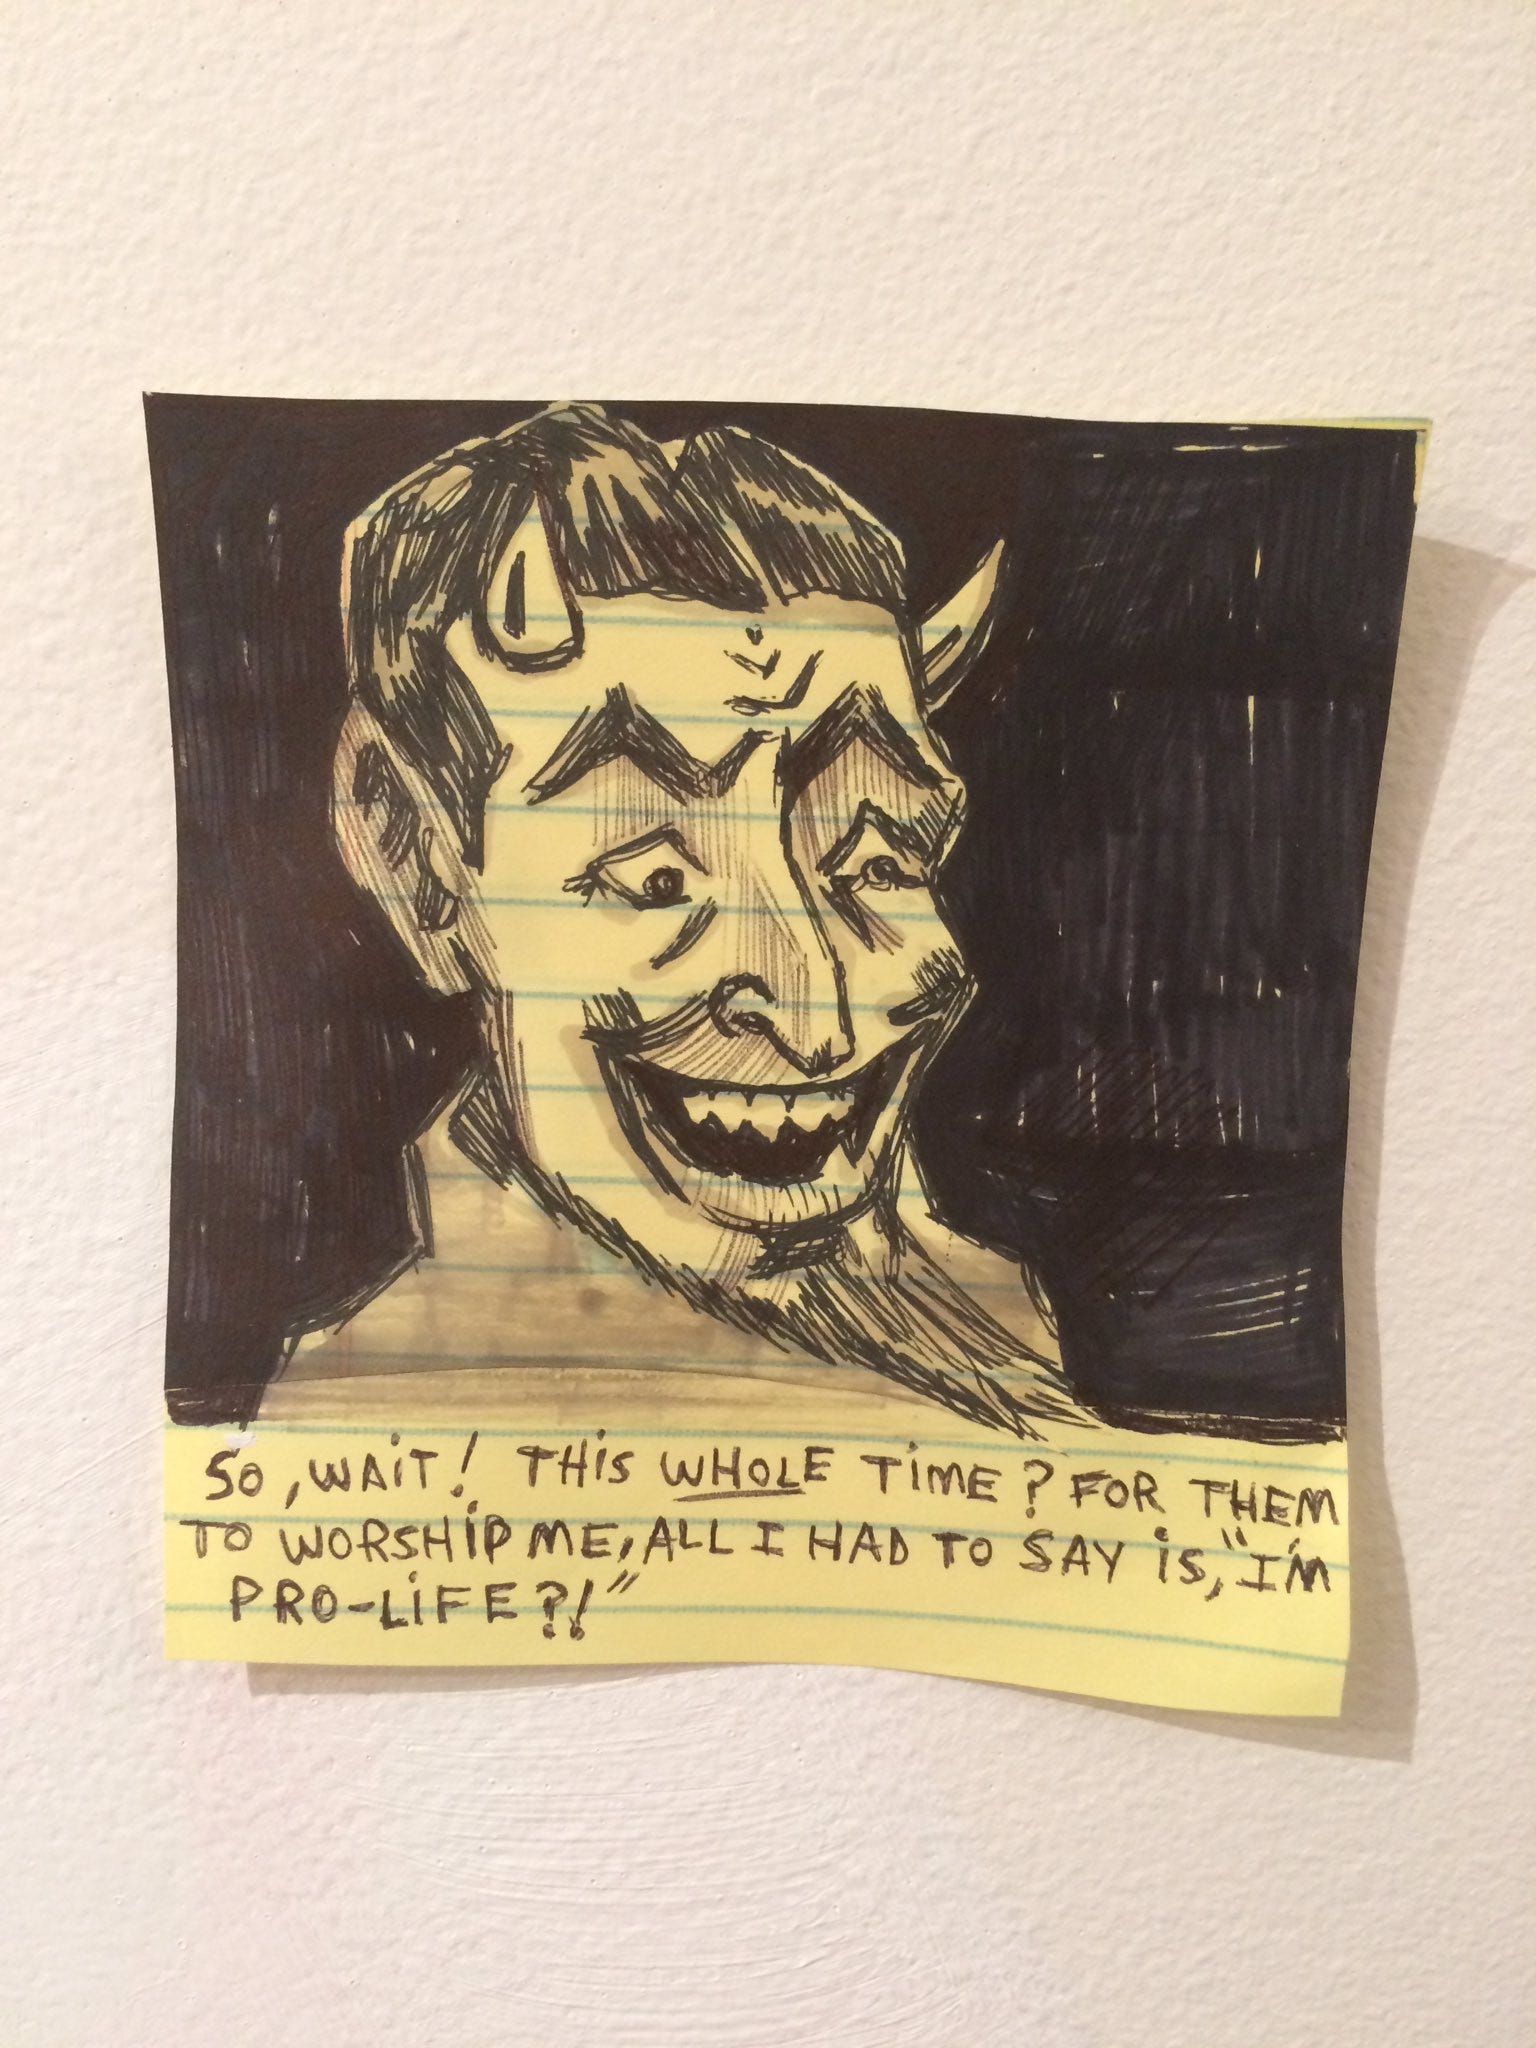 SO, WAIT! THIS WHOLE TIME? FOR THEM
TO WORSHIP ME, ALL I HAD TO SAY IS, "I'M
PRO-LIFE?!"